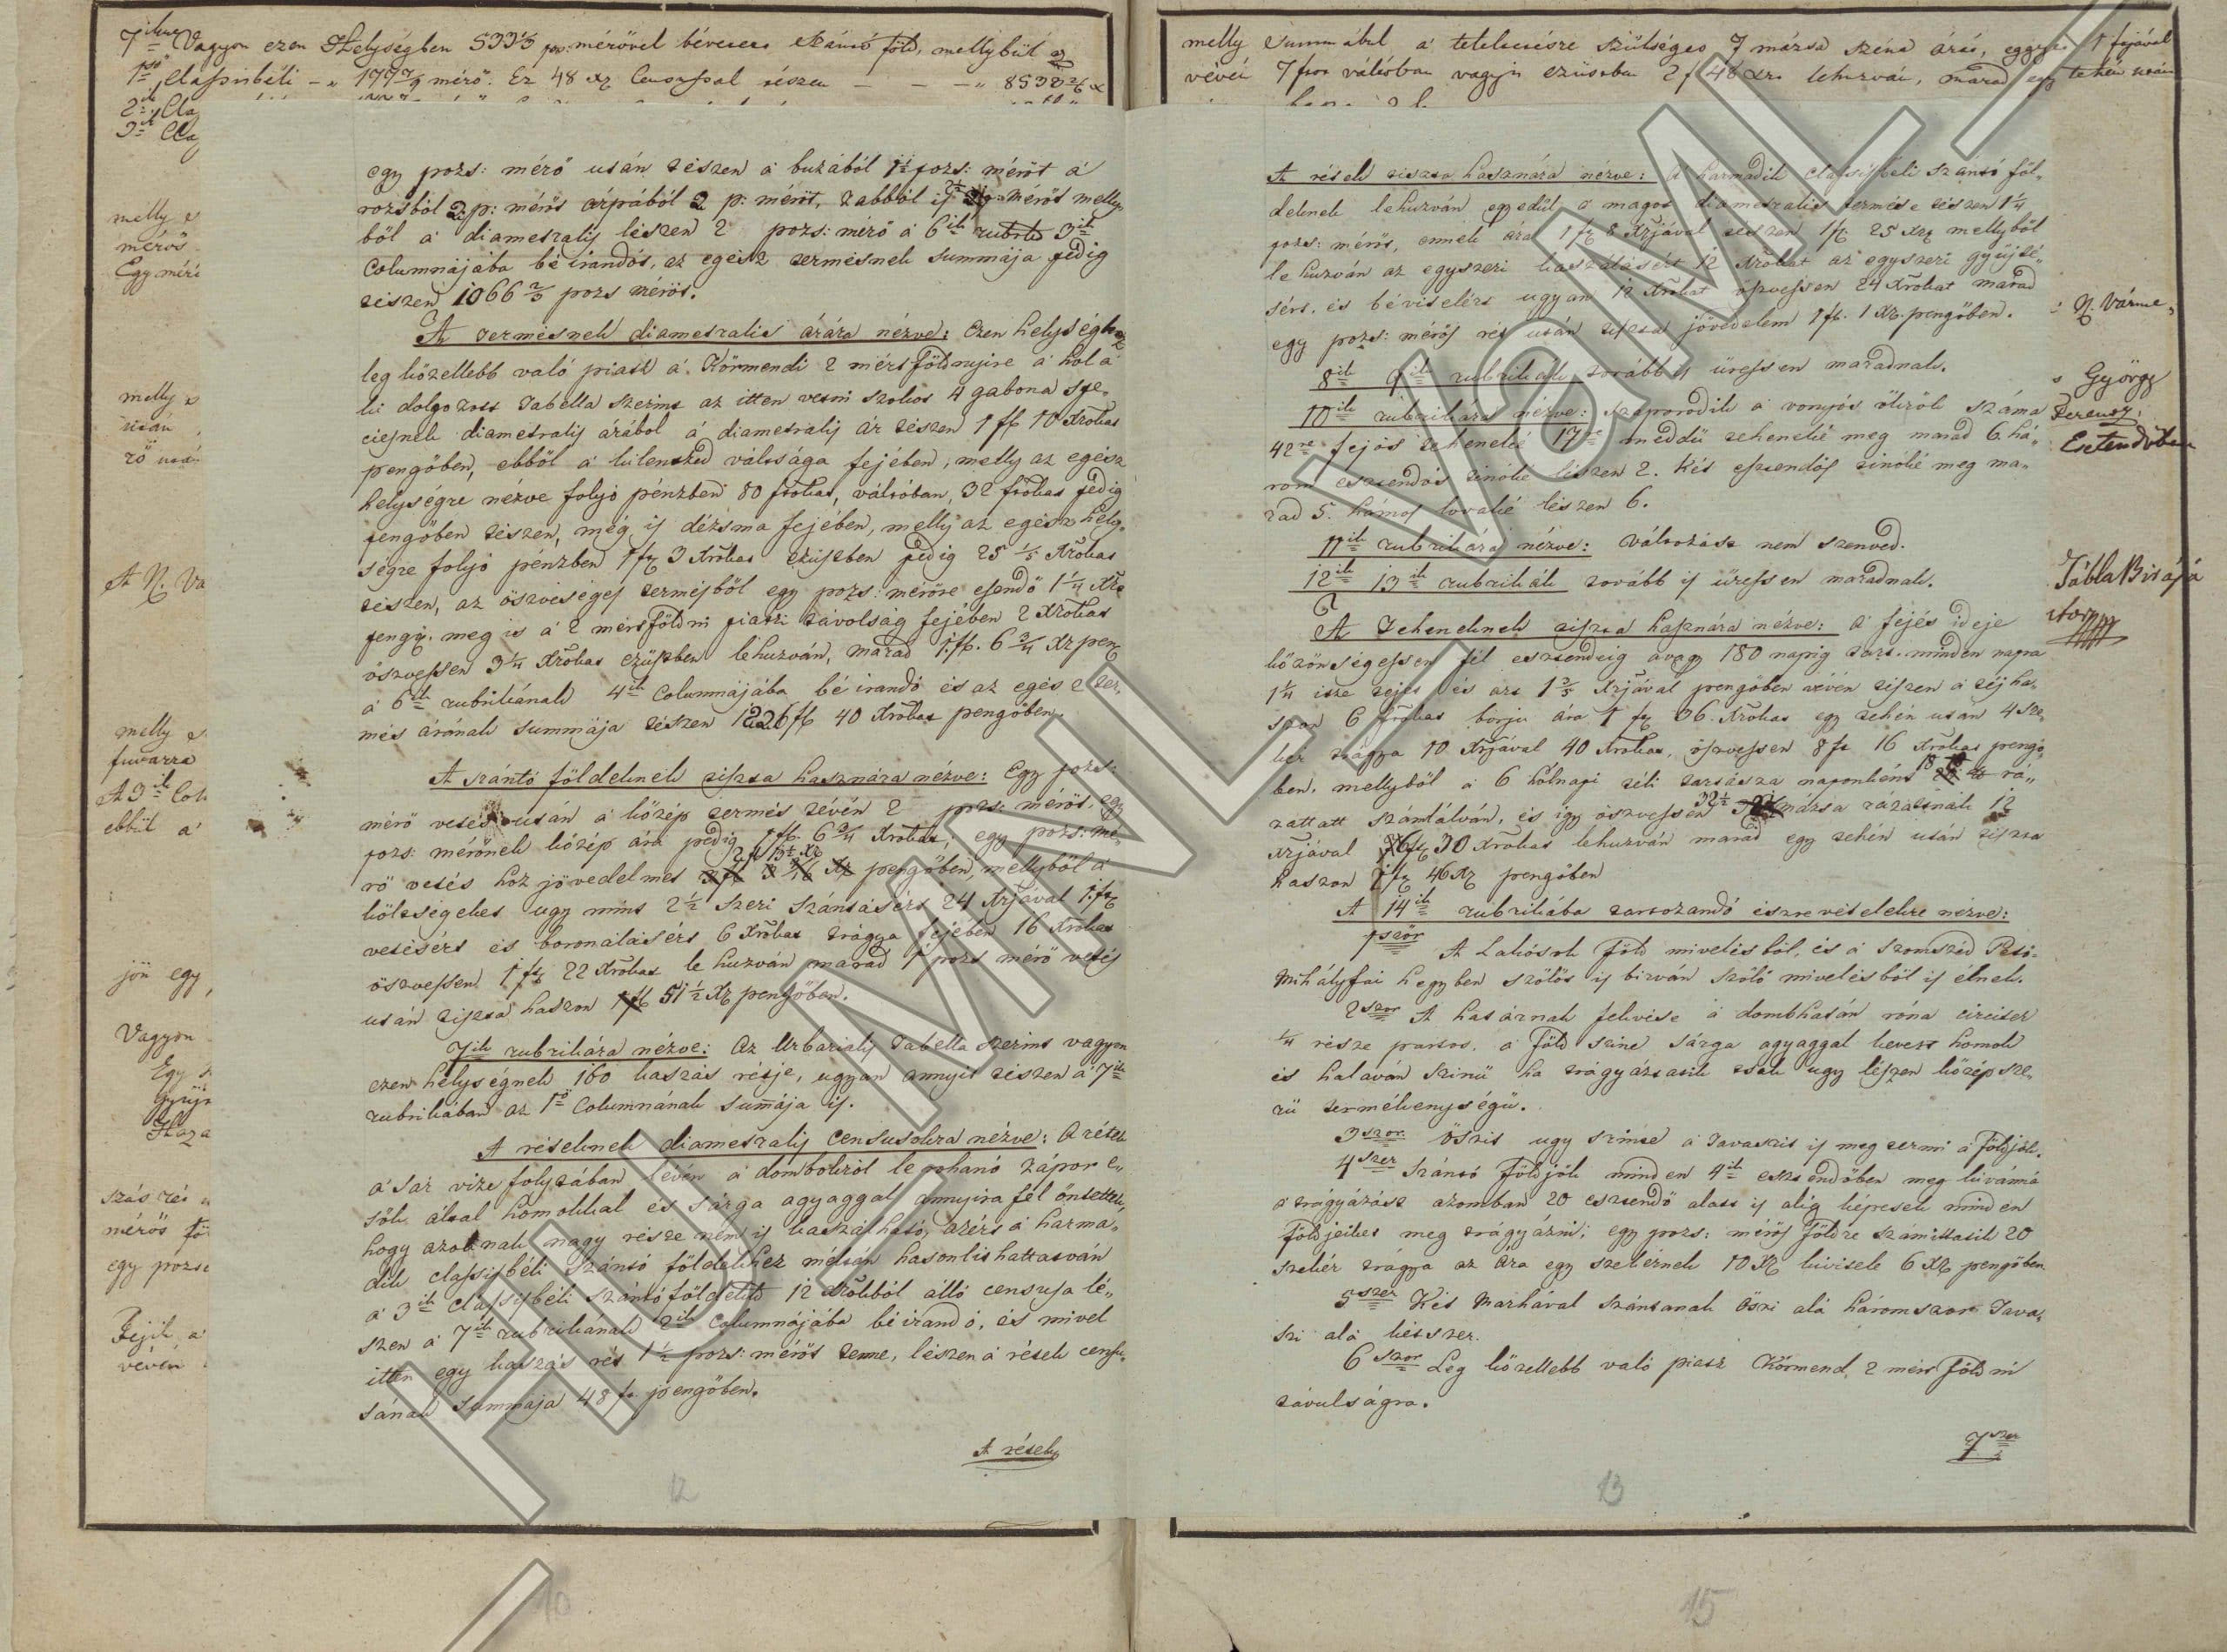 7ik Vagyon ezen Helységben 533⅓ pos: mérővel bévetett szántó föld, mellybül az
1ső Classisbéli 177 7/9 mérő. Ez 48 xr Censussal tészen 8538 2/6 x
2ik Clas
3ik Clas
melly
mérős
Egy méré
melly
után
rő után
A N. Va
melly
fuvarra
A 3ik Col
ebbül a'
jön egy
Vagyon
Egy
gyüjt
Haza
szás rét
mérős föl
egy pozso
Fejik a'
vévén
egy pozs: mérő után tészen a buzából 1½ pozs: mérőt a
rozsból 2 p: mérőt árpából 2 p: mérőt, zabból is 2½ mérőt melly
ből a diametralis lészen 2 pozs: mérő a 6ik rubrik 3ik
Columnájába bé irandó, az egész termésnek summája pedig
tészen 1066 2/3 pozs mérőt.
A termésnek diametralis árára nézve: Ezen helységhez
leg közellebb való piatz a Körmendi 2 mértföldnyire a hol a
ki dolgozott Tabella szerint az itten veszni szokot 4 gabona spe„
ciesnek diametralis árából a diametralis ár tészen 1 ft 10 Xrokat
pengőben, ebből a kilentzed váltsága fejében, melly az egész
helységre nézve folyó pénzben 80 frokat, váltóban, 32 frokat pedig
pengőben tészen, meg is dézsma fejében, melly az egész hely„
ségre folyó pénzben 1 fr 3 Xrokat ezüstben pedig 25 1/5 Xrokat
tészen, az öszveséges termésből egy pozs: mérőre esendő 1¼ Xrt
pengő. meg is a 2 mértföldni piatzi távolság fejében 2 Xrokat
öszvessen 3¼ Xrokat ezüstben lehuzván, marad 1 ft. 6¾ Xr peng
a 6ik rubrikának 4ik Columnájába bé irandó és az egész ter„
més árának summája tészen 1226 ft 40 Xrokat pengőben.
A szántó földeknek tiszta hasznára nézve: Egy pozs:
mérő vetés után a közép termés lévén 2 pozs: mérőt, egy
pozs: mérőnek közép ára pedig 1 ft. 6¾ Xrokat, egy pozs: mé„
2 ft 13½ Xr
rő vetés hoz jövedelmet pengőben, mellyből a
költségeket ugy mint 2½ szeri szántásért 24 Xrjával 1 fr
vetésért és boronálásért 6 Xrokat trágya fejében 16 Xrokat
öszvessen 1 fr 22 Xrokat le huzván marad 1 pozs mérő vetés
után tiszta haszon 51½ Xr pengőben.
7ik rubrikára nézve: Az Urbarialis Tabella szerint vagyon
ezen helységnek 160 kaszás rétje, ugyan annyit tészen a 7ik
rubrikában az 1ső Columnának sumája is.
A réteknek diametralis Censusokra nézve: A rétek
a Sár vize folytában lévén a dombokról le rohanó zápor e„
sők által homokkal és sárga agyaggal annyira fel öntettek,
hogy azoknak nagy része nem is kaszálható, azért a harma„
dik classisbéli szántó földekhez méltán hasonlithattatván
a 3ik classisbéli szántó földektő 12 Xrokból álló censusa lé„
szen a 7ik rubrikának 2ik Columnájába béirandó, és mivel
itten egy kaszás rét 1½ pozs: mérőt tenne, lészen a rétek censu„
sának summája 48 fr. pengőben.
A rétek
12
10
melly Summábul a' teleltetésre szükséges 7 mázsa széna árát, eggyet 1 fjával
vévén 7 fron váltóban vagyis ezüstben 2 f 48 xrt lehuzván, marad egy tehén után
A rétek tiszta hasznára nézve: A harmadik classisbéli szántó föl„
deknek lehuzván egyedül a magot diametralis termése tészen 1¼
pozs: mérőt, ennek ára 1 fr 8 Xrjával tészen 1 ft 25 Xr mellyből
le huzván az egyszeri kaszálásért 12 Xrokat az egyszeri gyüjté„
sért, és béviselért ugyan 12 Xrokat öszvessen 24 Xrokat marad
egy pozs: mérős rét után tiszta jövedelem 1 ft. 1 Xr. pengőben.
8ik 9ik rubrikák továbbis üressen maradnak.
10ik rubrikára nézve: szaporodik a vonyós ökrök száma
42re fejős teheneké 17re meddü teheneké meg marad 6. há„
rom esztendős tinóké lészen 2. Két esztendős tinóké meg ma„
rad 5. hámos lovaké lészen 6.
11ik rubrikára nézve: változást nem szenved.
12ik 13ik rubrikák továbbis üressen maradnak.
A Teheneknek tiszta hasznára nézve: a fejés ideje
közönségessen fél esztendeig avagy 180 napig tart. minden napra
1¼ itze tejet és azt 1 3/5 Xrjával pengőben vévén tészen a téj ha„
szon 6 frokat borju ára 1 fr 36. Xrokat egy tehén után 4 sze„
kér trágya 10 Xrjával 40 Xrokat, öszvessen 8 fr 16 Xrokat pengő„
ben. mellyből a 6 hólnapi téli tartásza naponként 18 ra„
zattatt számlálván, és igy öszvessen 32½ mázsa rázatnak 12
Xrjával 6 fr 30 Xrokat lehuzván marad egy tehén után tiszta
haszon 1 fr 46 Xr pengőben
A 14ik rubrikába tartozandó észrevételekre nézve:
1ször A Lakósok föld mivelésből, és a szomszéd Pető„
Mihályfai hegyben szőlőt is birván szőlő mivelésből is élnek.
2szor A határnak fekvése a dombhatán róna circiter
¼ része partos. a föld szine sárga agyaggal kevert homok
és halaván szinü ha trágyáztatik tsak ugy lészen közép sze„
rü termékenységű.
3szor Őszit ugy szinte a Tavaszit is meg termi a földjök.
4szer Szántó földjök minden 4ik esztendőben meg kivánná
a trágyázást azomban 20 esztendő alatt is alig képesek minden
földjeiket meg trágyázni; egy pozs: mérős földre számittatik 20
szekér trágya az ára egy szekérnek 10 Xr kivisele 6 Xr pengőben
5ször Két Marhával szántanak Őszi alá háromszor Tava„
szi alá kétszer.
6szor Leg közellebb való piatz Körmend 2 mért föld ni
távulságra.
7szer
N. Várme„
György
Ferencz
Esztendőben
Tábla Birája
13
15
HU MNL VSML